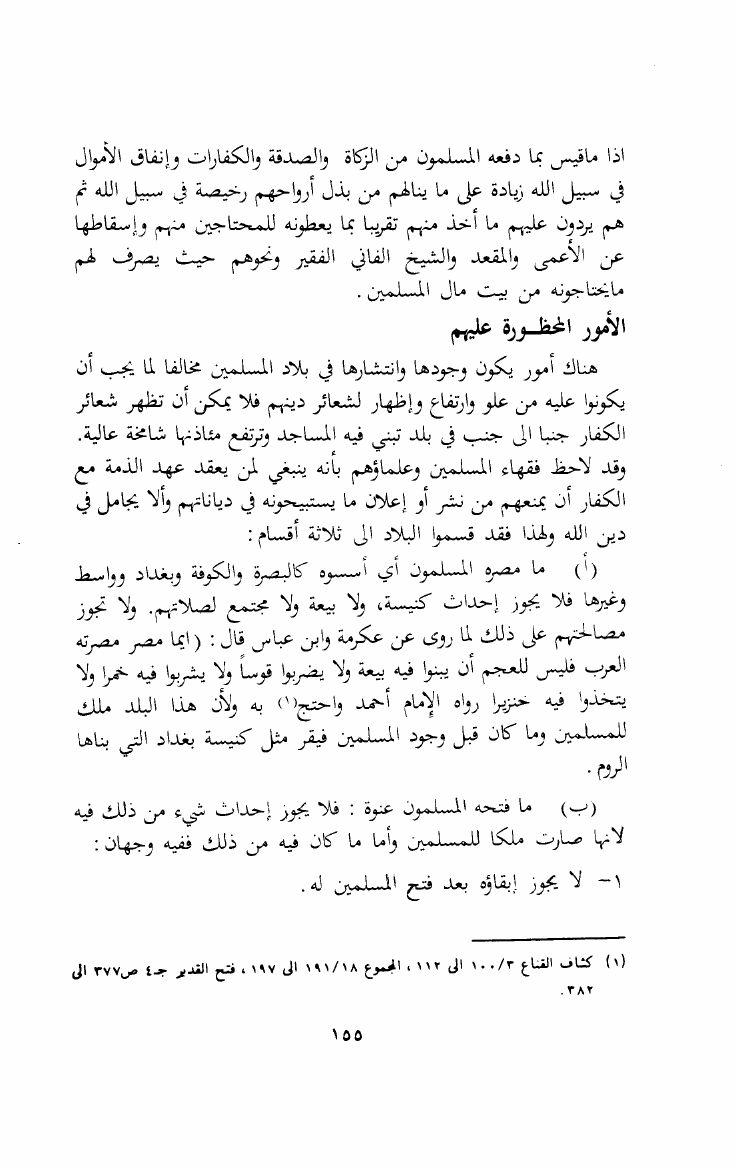 اذا ماقيس بما دفعه المسلمون من الزكاة والصدقة والكفارات وإنفاق الأموال
في سبيل الله زيادة على ما ينالهم من بذل أرواحهم رخيصة في سبيل الله ثم
هم يردون عليهم ما أخذ منهم تقريبا بما يعطونه للمحتاجين منهم وإسقاطها
عن الأعمى والمقعد والشيخ الفاني الفقير ونحوهم حيث يصرف لهم
مايحتاجونه من بيت مال المسلمين .
الأمور المحظورة عليهم
هناك أمور يكون وجودها وانتشارها في بلاد المسلمين مخالفا لما يجب أن
يكونوا عليه من علو وارتفاع وإظهار لشعائر دينهم فلا يمكن أن تظهر شعائر
الكفار جنبا الى جنب في بلد تبني فيه المساجد وترتفع مئاذنها شامخة عالية.
وقد لاحظ فقهاء المسلمين وعلماؤهم بأنه ينبغي لمن يعقد عهد الذمة مع
الكفار أن يمنعهم من نشر أو إعلان ما يستبيحونه في دياناتهم وألا يجامل في
دين الله ولهذا فقد قسموا البلاد الى ثلاثة أقسام :
(أ) ما مصره المسلمون أي أسسوه كالبصرة والكوفة وبغداد وواسط
وغيرها فلا يجوز إحداث كنيسة، ولا بيعة ولا مجتمع لصلاتهم. ولا تجوز
مصالحتهم على ذلك لما روى عن عكرمة وابن عباس قال : (ايما مصر مصرته
العرب فليس للعجم أن يبنوا فيه بيعة ولا يضربوا قوساً ولا يشربوا فيه خمرا ولا
يتخذوا فيه خنزيرا رواه الإمام أحمد واحتج(١) به ولأن هذا البلد ملك
للمسلمين وما كان قبل وجود المسلمين فيقر مثل كنيسة بغداد التي بناها
الروم .
(ب) ما فتحه المسلمون عنوة : فلا يجوز إحداث شيء من ذلك فيه
لانها صارت ملكا للمسلمين وأما ما كان فيه من ذلك ففيه وجهان :
١– لا يجوز إبقاؤه بعد فتح المسلمين له .
(١) كشاف القناع ١٠٠/٣ الى ١١٢ ، المجموع ١٩١/١٨ الى ١٩٧ ، فتح القدير جـ٤ ص٣٧٧ الى
٣٨٢ .
١٥٥